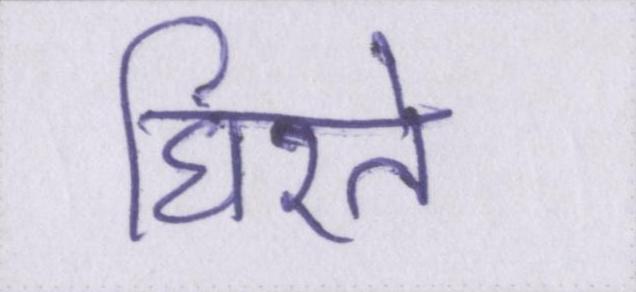 घिरते